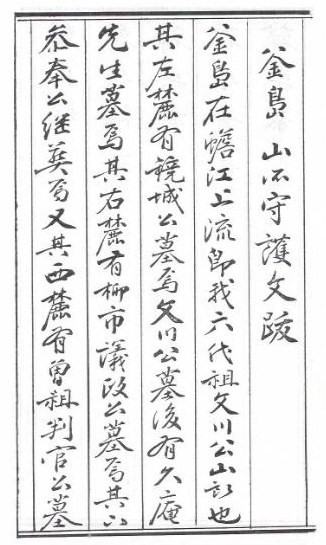 釜島 山所守護文跋
釜島在蟾江上流卽我六代祖文川公山所也
其左麓有鏡城公墓焉文川公墓後有久庵
先生墓焉其右麓有柳市議政公墓焉其下
叅奉公継葬焉又其西麓有曾祖判官公墓